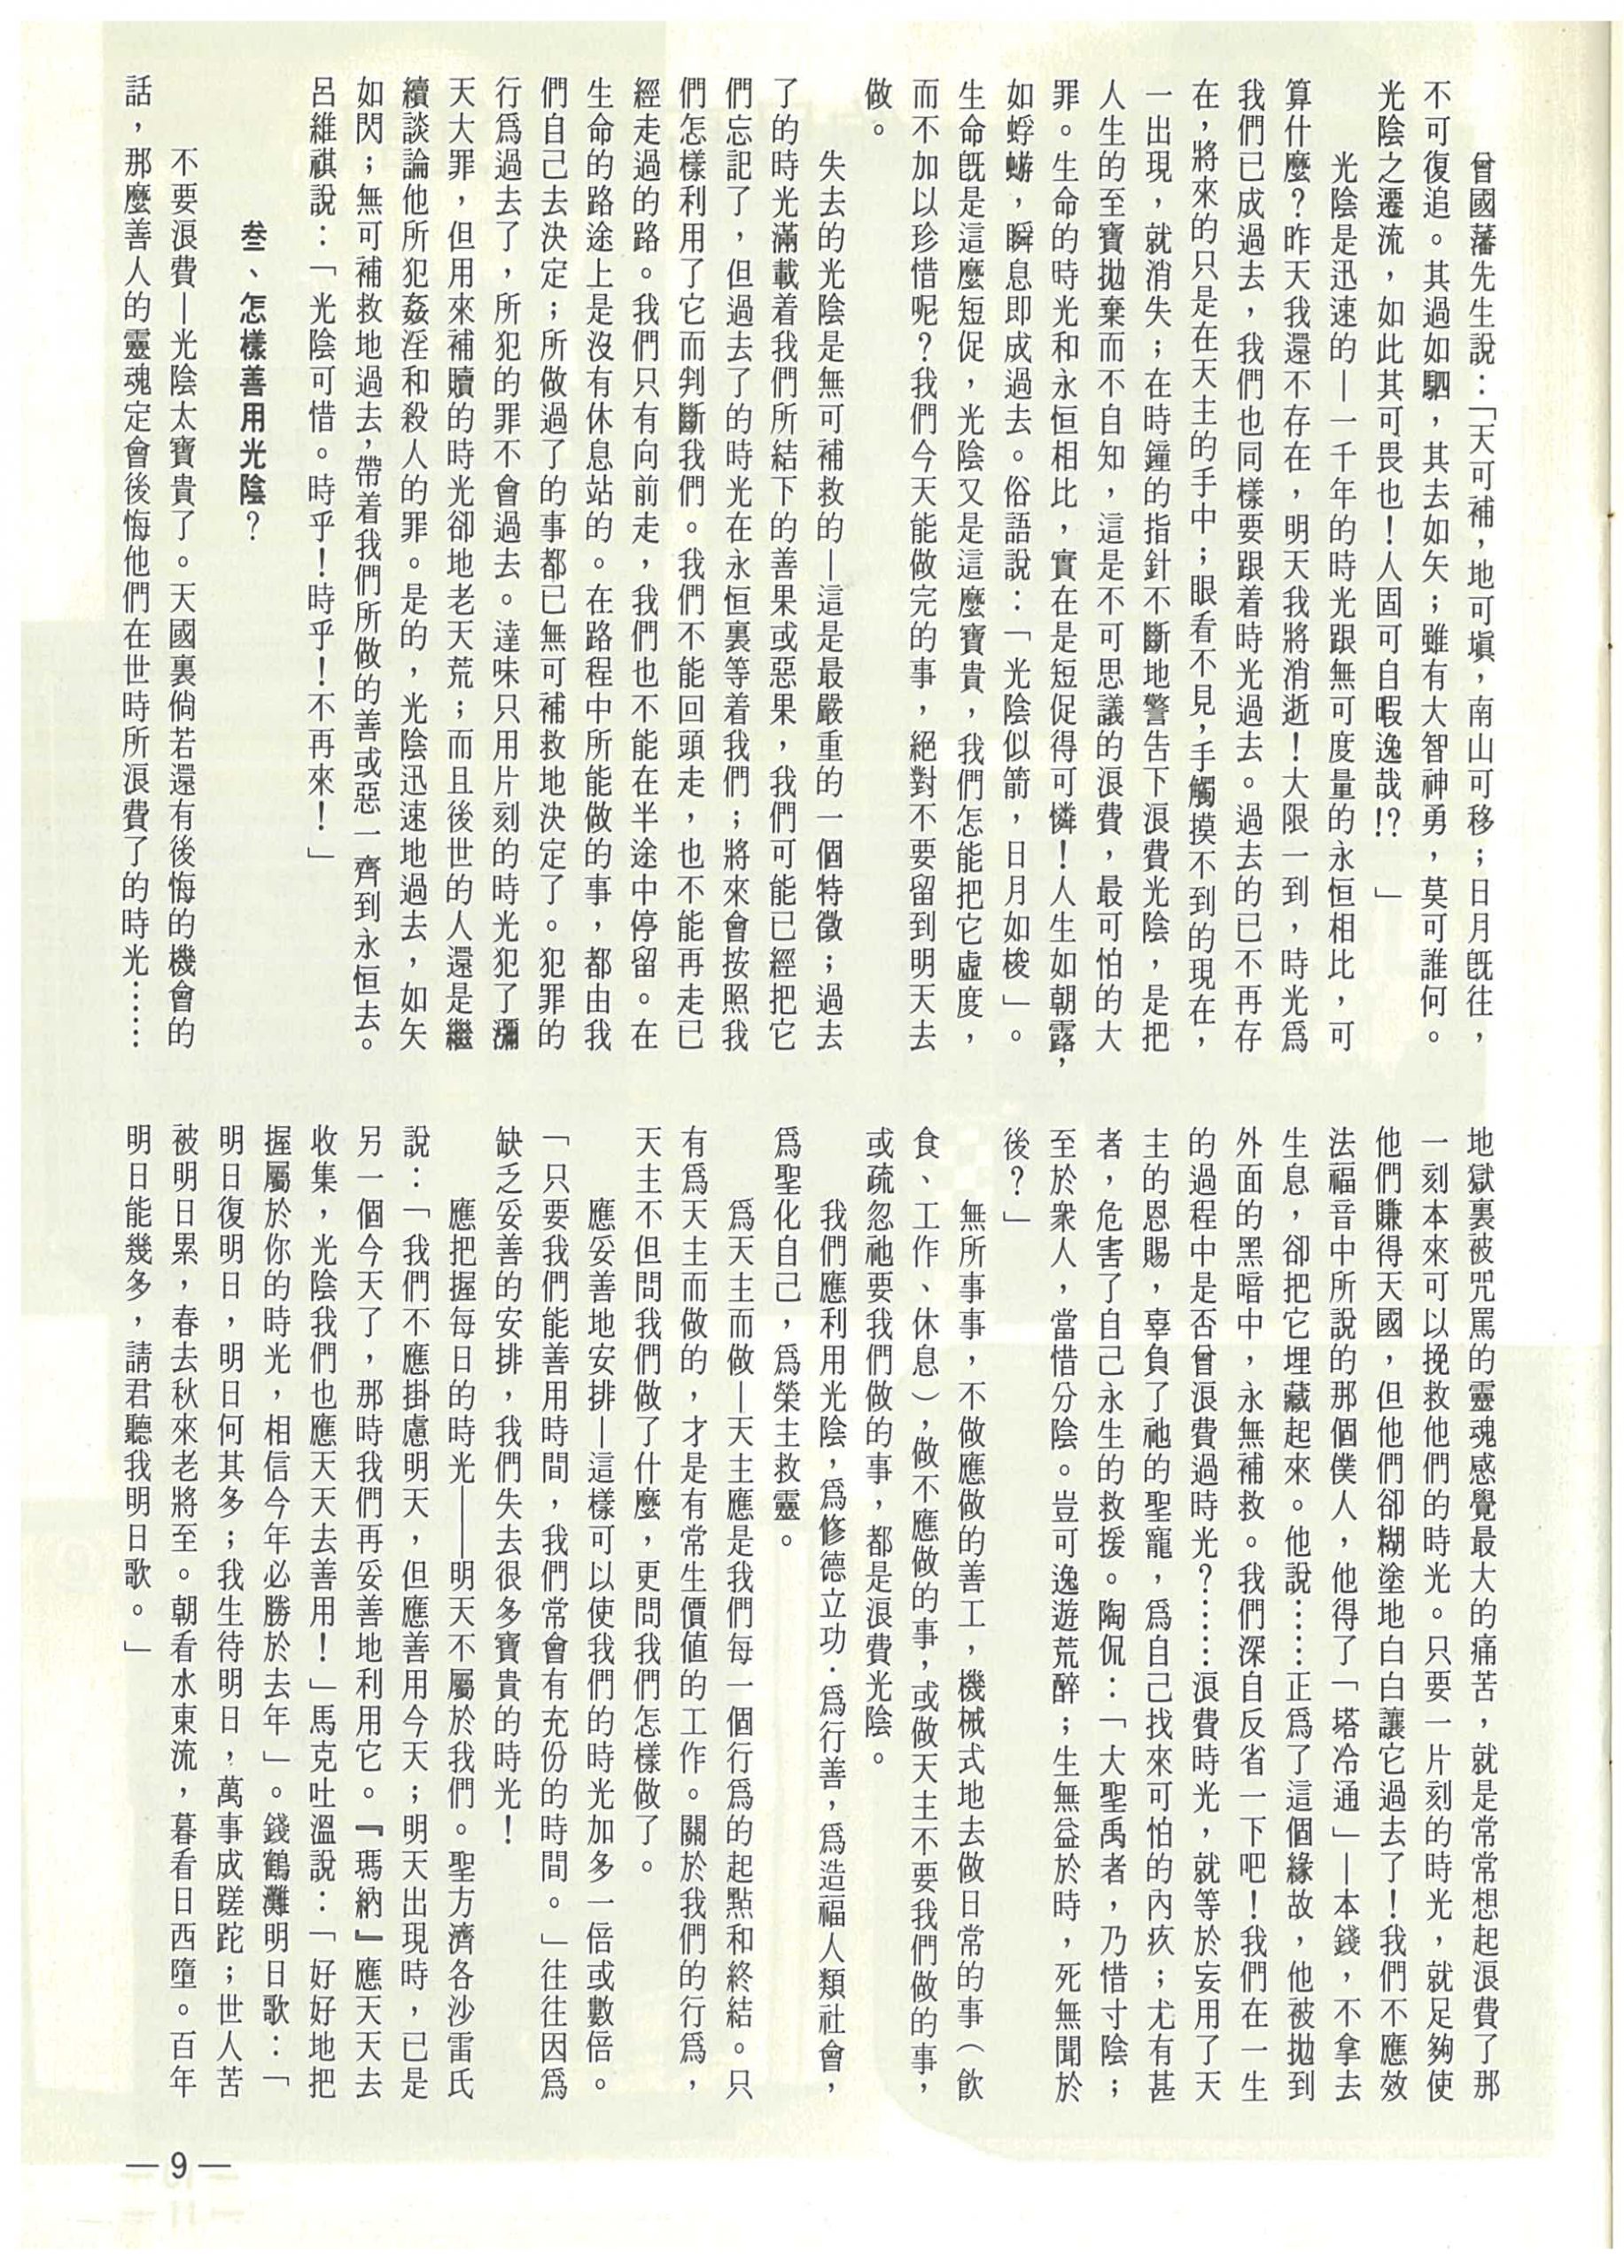 曾國藩先生說：「天可補，地可塡，南山可移；日月旣往，
不可復追。其過如駟，其去如矢；雖有大智神勇，莫可誰何。
光陰之遷流，如此其可畏也！人固可自暇逸哉!?」
光陰是迅速的—一千年的時光跟無可度量的永恒相比，可
算什麼？昨天我還不存在，明天我將消逝！大限一到，時光爲
我們已成過去，我們也同樣要跟着時光過去。過去的已不再存
在，將來的只是在天主的手中；眼看不見，手觸摸不到的現在，
一出現，就消失；在時鐘的指針不斷地警告下浪費光陰，是把
人生的至寶拋棄而不自知，這是不可思議的浪費，最可怕的大
罪。生命的時光和永恒相比，實在是短促得可憐！人生如朝露，
如蜉蝣，瞬息即成過去。俗語說：「光陰似箭，日月如梭」。
生命旣是這麼短促，光陰又是這麼寶貴，我們怎能把它虛度，
而不加以珍惜呢？我們今天能做完的事，絕對不要留到明天去
做。
失去的光陰是無可補救的—這是最嚴重的一個特徵；過去
了的時光滿載着我們所結下的善果或惡果，我們可能已經把它
們忘記了，但過去了的時光在永恒裏等着我們；將來會按照我
們怎樣利用了它而判斷我們。我們不能回頭走，也不能再走已
經走過的路。我們只有向前走，我們也不能在半途中停留。在
生命的路途上是沒有休息站的。在路程中所能做的事，都由我
們自己去決定；所做過了的事都已無可補救地決定了。犯罪的
行爲過去了，所犯的罪不會過去。達味只用片刻的時光犯了瀰
天大罪，但用來補贖的時光卻地老天荒；而且後世的人還是繼
續談論他所犯姦淫和殺人的罪。是的，光陰迅速地過去，如矢
如閃；無可補救地過去，帶着我們所做的善或惡一齊到永恒去。
呂維祺說：「光陰可惜。時乎！時乎！不再來！」
叁、怎樣善用光陰？
不要浪費—光陰太寶貴了。天國裏倘若還有後悔的機會的
話，那麼善人的靈魂定會後悔他們在世時所浪費了的時光……
地獄裏被咒罵的靈魂感覺最大的痛苦，就是常常想起浪費了那
一刻本來可以挽救他們的時光。只要一片刻的時光，就足夠使
他們賺得天國，但他們卻糊塗地白白讓它過去了！我們不應效
法福音中所說的那個僕人，他得了「塔冷通」—本錢，不拿去
生息，卻把它埋藏起來。他說……正爲了這個緣故，他被拋到
外面的黑暗中，永無補救。我們深自反省一下吧！我們在一生
的過程中是否曾浪費過時光？……浪費時光，就等於妄用了天
主的恩賜，辜負了祂的聖寵，爲自己找來可怕的內疚；尤有甚
者，危害了自己永生的救援。陶侃：「大聖禹者，乃惜寸陰；
至於衆人，當惜分陰。豈可逸遊荒醉；生無益於時，死無聞於
後？」
無所事事，不做應做的善工，機械式地去做日常的事（飲
食、工作、休息），做不應做的事，或做天主不要我們做的事，
或疏忽祂要我們做的事，都是浪費光陰。
我們應利用光陰，爲修德立功．爲行善，爲造福人類社會，
爲聖化自己，爲榮主救靈。
爲天主而做—天主應是我們每一個行爲的起點和終結。只
有爲天主而做的，才是有常生價值的工作。關於我們的行爲，
天主不但問我們做了什麼，更問我們怎樣做了。
應妥善地安排—這樣可以使我們的時光加多一倍或數倍。
「只要我們能善用時間，我們常會有充份的時間。」往往因爲
缺乏妥善的安排，我們失去很多寶貴的時光！
應把握每日的時光——明天不屬於我們。聖方濟各沙雷氏
說：「我們不應掛慮明天，但應善用今天；明天出現時，已是
另一個今天了，那時我們再妥善地利用它。『瑪納』應天天去
收集，光陰我們也應天天去善用！」馬克吐溫說：「好好地把
握屬於你的時光，相信今年必勝於去年」。錢鶴灘明日歌：「
明日復明日，明日何其多；我生待明日，萬事成蹉跎；世人苦
被明日累，春去秋來老將至。朝看水東流，暮看日西墮。百年
明日能幾多，請君聽我明日歌。」
—9—